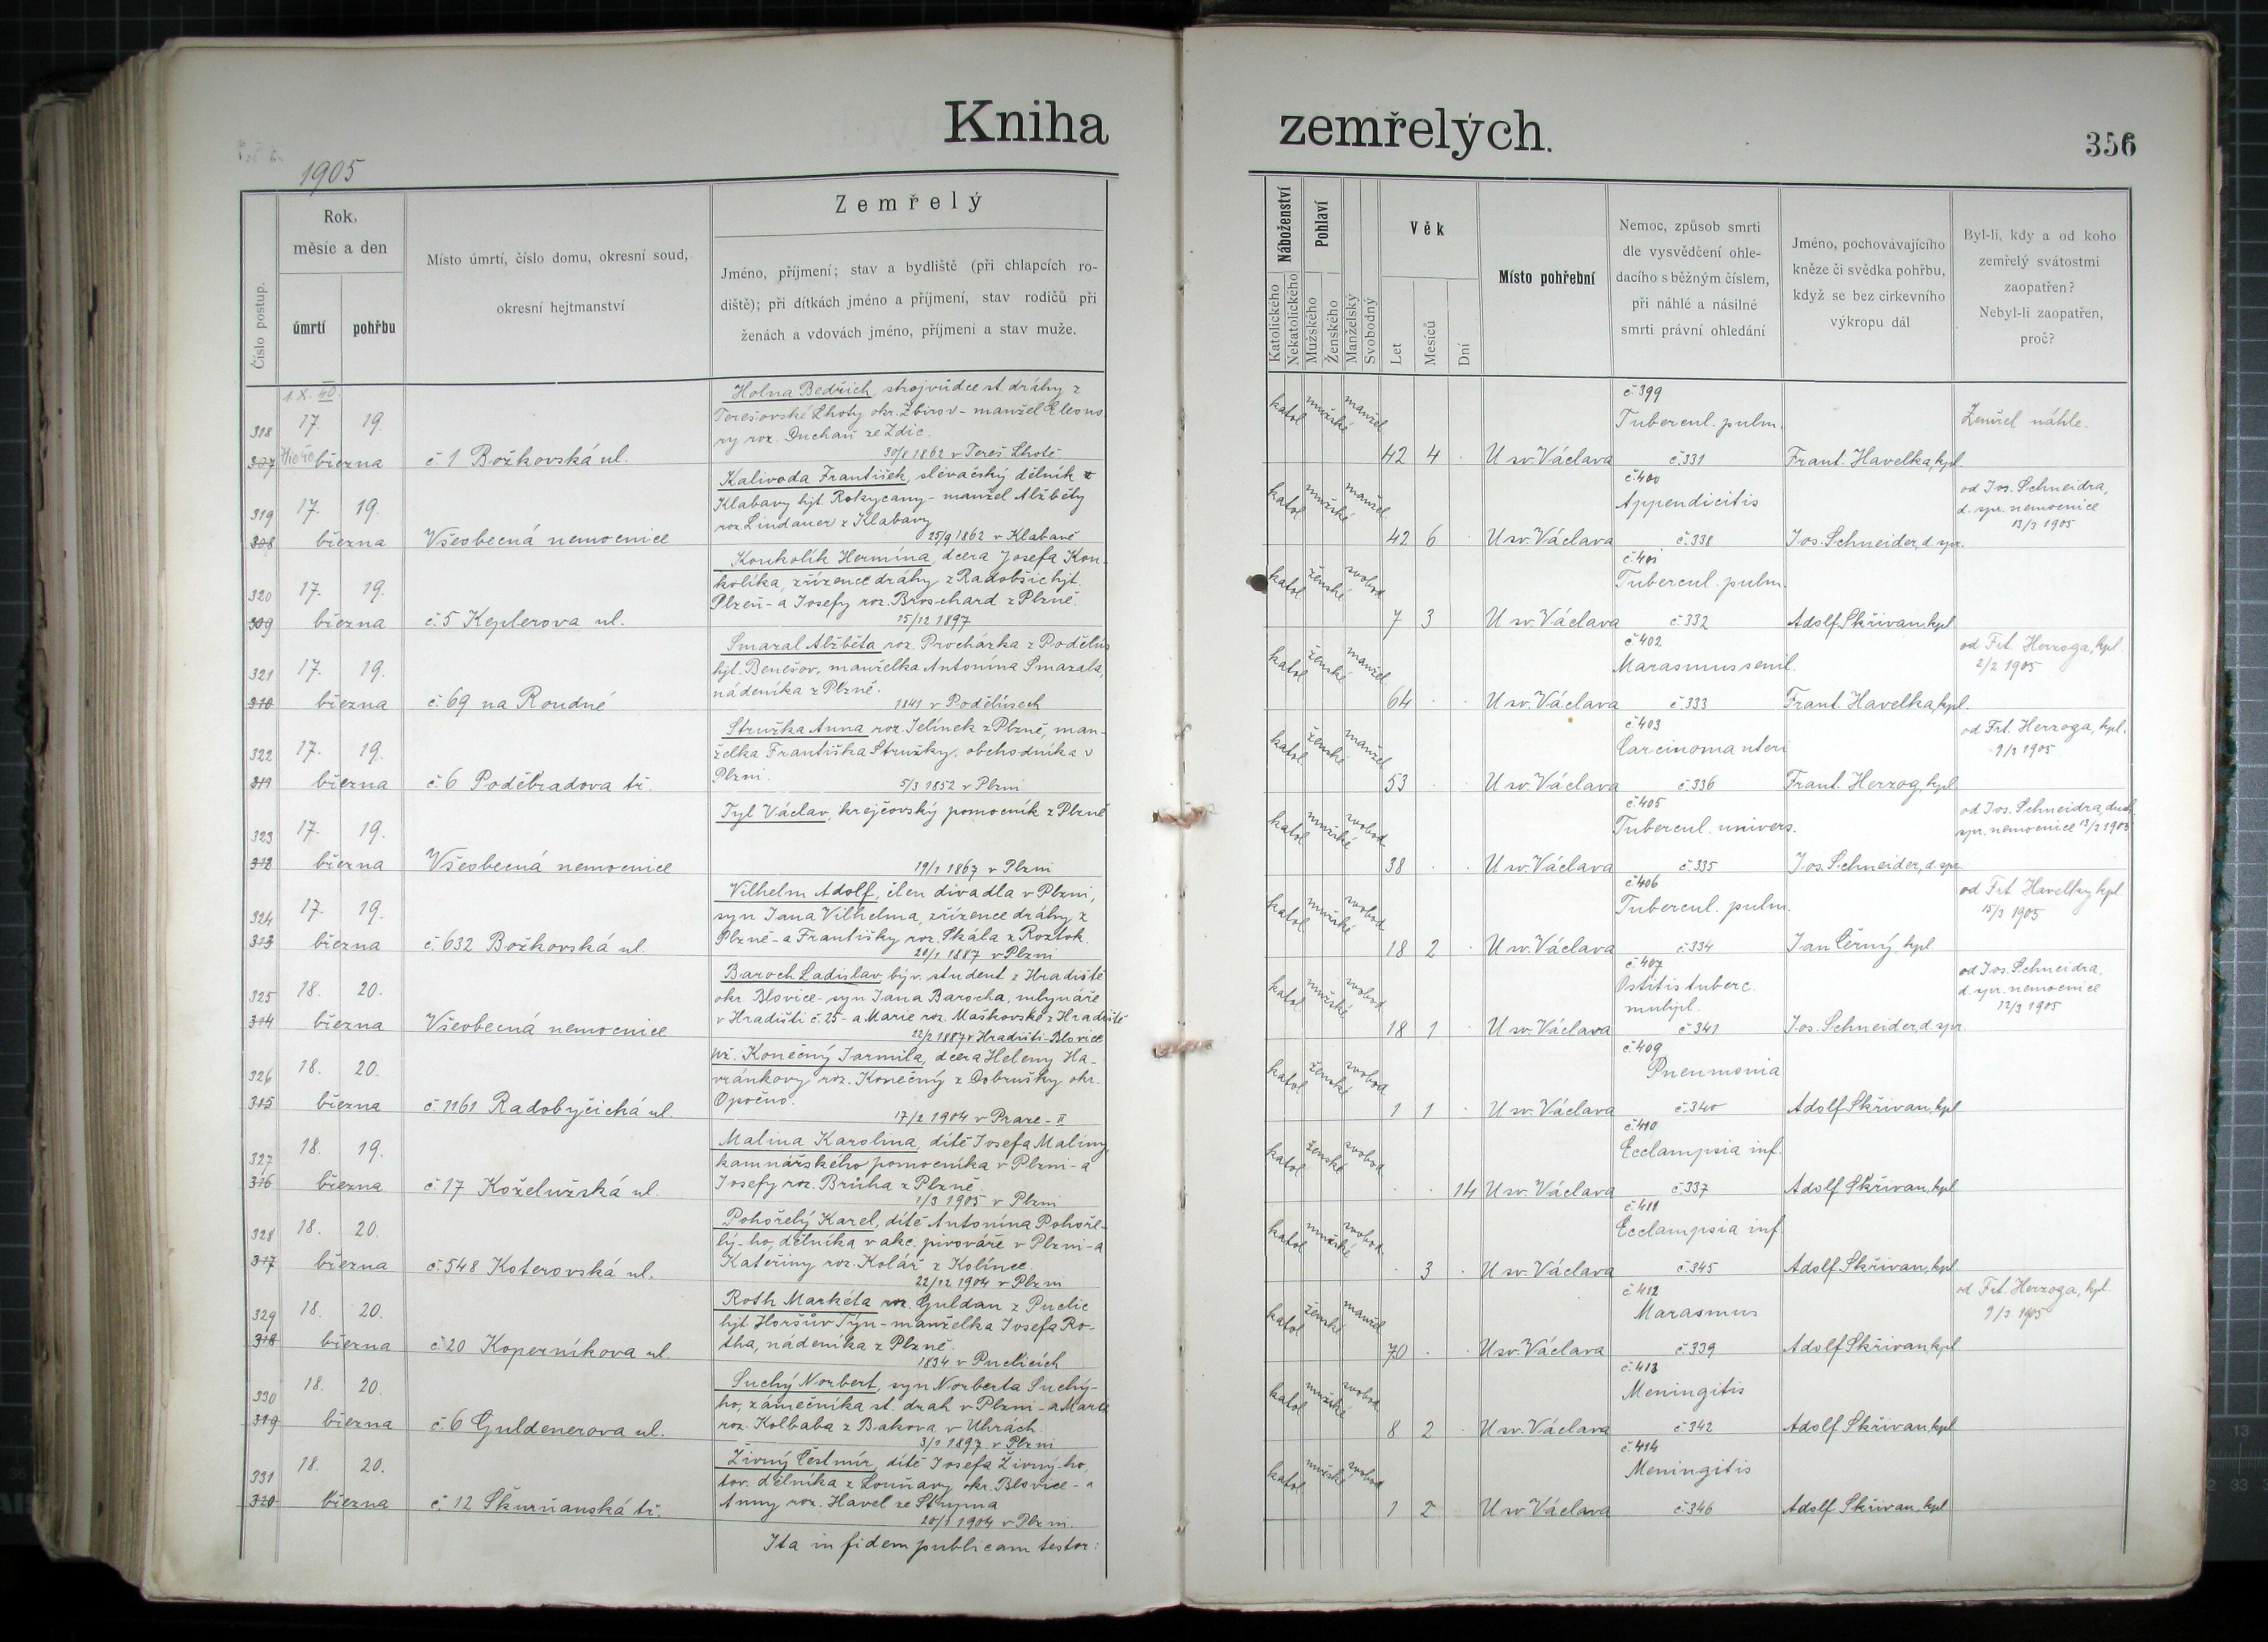 Kniha zemřelých.
356
1905
Číslo postup.
Rok, měsíc a den
úmrtí
pohřbu
Místo úmrtí, číslo domu, okresní soud,
okresní hejtmanství
Zemřelý
Jméno, příjmení; stav a bydliště (při chlapcích ro-
diště); při dítkách jméno a příjmení, stav rodičů při
ženách a vdovách jméno, příjmení a stav muže.
Náboženství
Katolického
Nekatolického
Pohlaví
Mužského
Ženského
Manželský
Svobodný
Věk
Let
Mesíců
Dní
Místo pohřební
Nemoc, způsob smrti
dle vysvědčení ohle-
dacího s běžným číslem,
při náhlé a násilné
smrti právní ohledání
Jméno, pochovávajícího
kněze či svědka pohřbu,
když se bez cirkevního
výkropu dál
Byl-li, kdy a od koho
zemřelý svátostmi
zaopatřen?
Nebyl-li zaopatřen,
proč?
1. X. 40.
318
307
17. 19.
března
č. 1 Božkovská ul.
Holna Bedřich, strojvůdce st. dráhy z
Terešovské Lhoty okr. Zbirov - manžel Eleono
ry roz. Duchaň ze Zdic.
30/8 1862 v Tereš. Lhotě
katol mužské manžel
42 4 .
U sv. Václava
č. 399
Tubercul. pulm.
č. 331
Frant. Havelka, kpl.
Zemřel náhle.
319
308
17. 19.
března
Všeobecná nemocnice
Kalivoda František, slévačský dělník z
Klabavy hjt. Rokycany - manžel Alžběty
roz. Lindauer z Klabavy
25/9 1862 v Klabavě
katol mužské manžel
42 6 .
U sv. Václava
č. 400
Appendicitis
č. 338
Jos. Schneider, d. spr.
od Jos. Schneidra,
d. spr. nemocnice
13/3 1905
320
309
17. 19.
března
č. 5 Keplerova ul.
Koukolík Hermína, dcera Josefa Kou-
kolíka, zřízence dráhy z Radobšic hjt.
Plzeň - a Josefy roz. Broschard z Plzně.
15/12 1897
katol ženské svobod
7 3
U sv. Václava
č. 401
Tubercul. pulm.
č. 332
Adolf Skřivan, kpl
321
310
17. 19.
března
č. 69 na Roudné
Smazal Alžběta roz. Procházka z Podělús
hjt. Benešov, manželka Antonína Smazala,
nádeníka z Plzně.
1841 v Podělúsech
katol ženské manžel
64 . .
U sv. Václava
č. 402
Marasmus senil.
č. 333
Frant. Havelka, kpl.
od Frt. Herzoga, kpl.
2/2 1905
322
311
17. 19.
března
č. 6 Poděbradova tř.
Stružka Anna roz. Jelínek z Plzně, man-
želka Františka Stružky, obchodníka v
Plzni.
5/3 1852 v Plzni
katol ženské manžel
53 . .
U sv. Václava
č. 403
Carcinoma uteri
č. 336
Frant. Herzog, kpl
od Frt. Herzoga, kpl.
9/3 1905
323
312
17. 19.
března
Všeobecná nemocnice
Tyl Václav, krejčovský pomocník z Plzně
19/1 1867 v Plzni
katol mužské svobod
38 . .
U sv. Václava
č. 405
Tubercul. univers.
č. 335
Jos. Schneider, d. spr.
od Jos. Schneidra, duch.
spr. nemocnice 13/3 1905
324
313
17. 19.
března
č. 632 Božkovská ul.
Vilhelm Adolf, člen divadla v Plzni,
syn Jana Vilhelma, zřízence dráhy z
Plzně - a Františky roz. Skála z Roztok.
20/1 1887 v Plzni
katol mužské svobod
18 2 .
U sv. Václava
č. 406
Tubercul. pulm.
č. 334
Jan Černý, kpl
od Frt. Havelky kpl.
15/3 1905
325
314
18. 20.
března
Všeobecná nemocnice
Baroch Ladislav býv. student z Hradiště
okr. Blovice - syn Jana Barocha, mlynáře
v Hradišti č. 25 - a Marie roz. Maškovské z Hradiště
22/2 1887 v Hradišti-Blovice
katol mužské svobod
18 1 .
U sv. Václava
č. 407
Ostitis tuberc.
multipl.
č. 341
Jos. Schneider, d. spr.
od Jos. Schneidra,
d. spr. nemocnice
12/3 1905
326
315
18. 20.
března
č. 1161 Radobyčická ul.
Konečný Jarmila, dcera Heleny Ha-
vránkovy roz. Konečný z Dobrušky okr.
Opočno.
17/2 1904 v Praze - II
katol ženské svobod
1 1 .
U sv. Václava
č. 409
Pneumonia
č. 340
Adolf Skřivan, kpl
327
316
18. 19.
března
č. 17 Koželužská ul.
Malina Karolina, dítě Josefa Maliny,
kamnářského pomocníka v Plzni - a
Josefy roz. Brůha z Plzně.
1/3 1905 v Plzni
katol ženské svobod
. . 14
U sv. Václava
č. 410
Ecclampsia inf.
č. 337
Adolf Skřivan, kpl
328
317
18. 20.
března
č. 548 Koterovská ul.
Pohořelý Karel, dítě Antonína Pohoře-
lý-ho, dělníka v akc. pivováře v Plzni - a
Kateřiny roz. Kolář z Kolince.
22/12 1904 v Plzni
katol mužské svobod
. 3 .
U sv. Václava
č. 411
Ecclampsia inf.
č. 345
Adolf Skřivan, kpl
329
318
18. 20.
března
č. 20 Koperníkova ul.
Roth Markéta roz. Guldan z Puclic
hjt. Horšův Týn - manželka Josefa Ro-
tha, nádeníka z Plzně.
1834 v Puclicích
katol ženské manžel
70 . .
U sv. Václava
č. 412
Marasmus
č. 339
Adolf Skřivan, kpl
od Frt. Herzoga, kpl.
9/3 1905
330
319
18. 20.
března
č. 6 Guldenerova ul.
Suchý Norbert, syn Norberta Suchý-
ho, zámečníka st. drah v Plzni - a Marie
roz. Kolbaba z Bakova v Uhrách.
3/1 1897 v Plzni
katol mužské svobod
8 2 .
U sv. Václava
č. 413
Meningitis
č. 342
Adolf Skřivan, kpl
331
320
18. 20.
března
č. 12 Škurňanská tř.
Živný Čestmír, dítě Josefa Živný-ho,
tov. dělníka z Louňavy okr. Blovice - a
Anny roz. Havel ze Stupna
20/1 1904 v Plzni.
katol mužské svobod
1 2
U sv. Václava
č. 414
Meningitis
č. 346
Adolf Skřivan, kpl
Ita in fidem publicam testor: